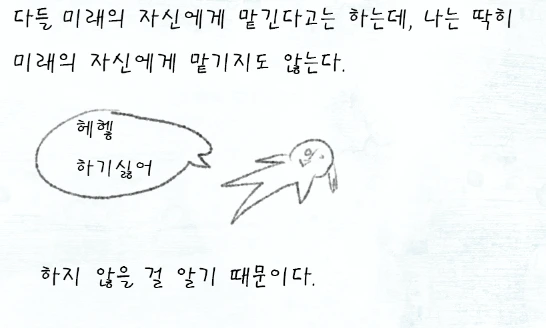 다들 미래의 자신에게 맡긴다고는 하는데, 나는 딱히
미래의 자신에게 맡기지도 않는다.
헤헿
하기싫어
하지 않을 걸 알기 때문이다.